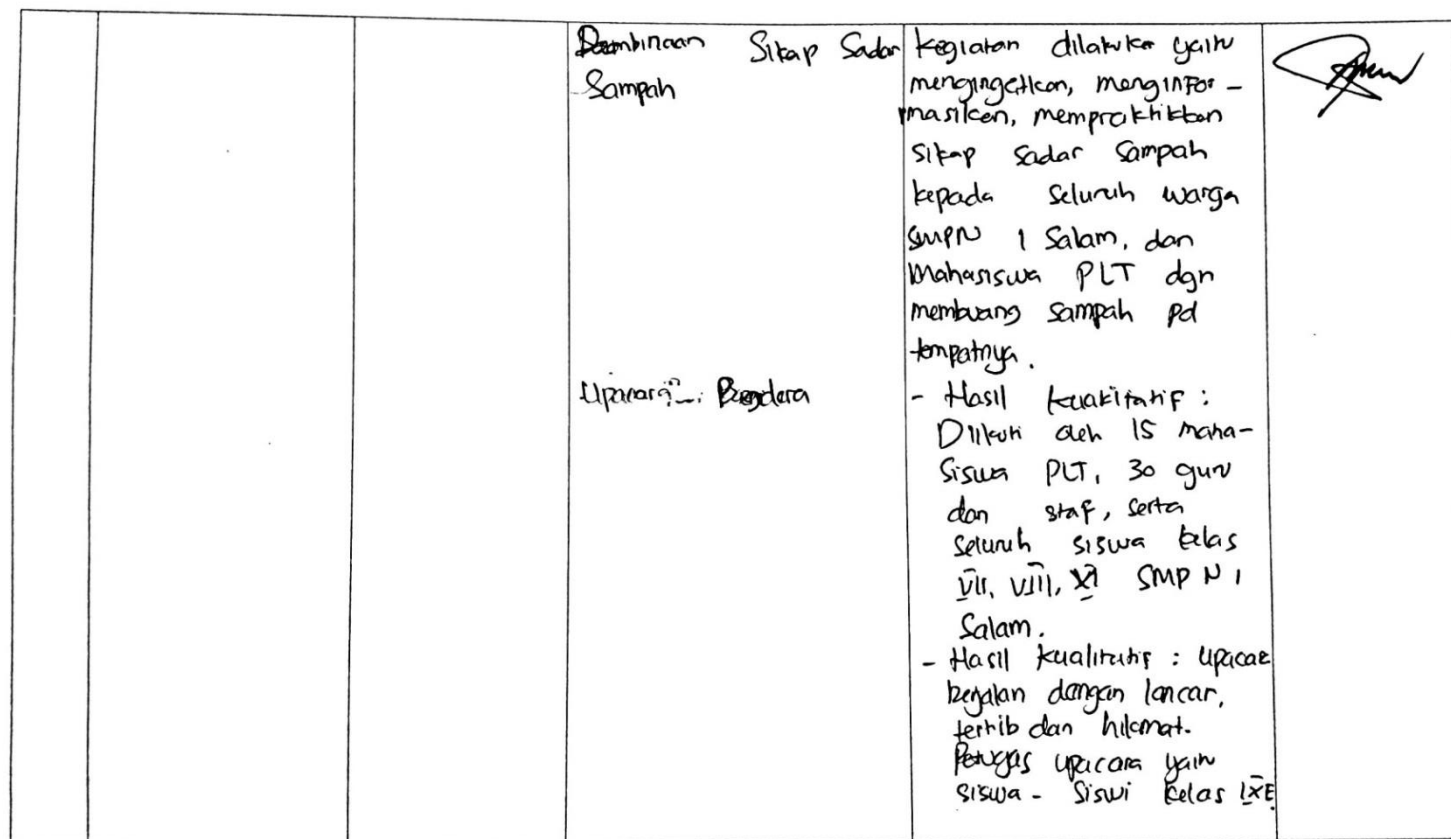 Pembinaan Sikap Sadar
Sampah
kegiatan dilakukan yaitu
mengingatkan, menginfor-
masikan, mempraktikkan
sikap sadar sampah
kepada seluruh warga
SMPN 1 Salam, dan
Mahasiswa PLT dgn
membuang sampah pd
tempatnya.
Upacara Bendera
- Hasil kuatitatif :
Diikuti oleh 15 maha-
siswa PLT, 30 guru
dan staf, serta
seluruh siswa kelas
VII, VIII, XI SMP N 1
Salam.
- Hasil kualitatif : upacara
berjalan dengan lancar,
tertib dan hikmat.
Petugas upacara yaitu
siswa - siswi kelas IXE